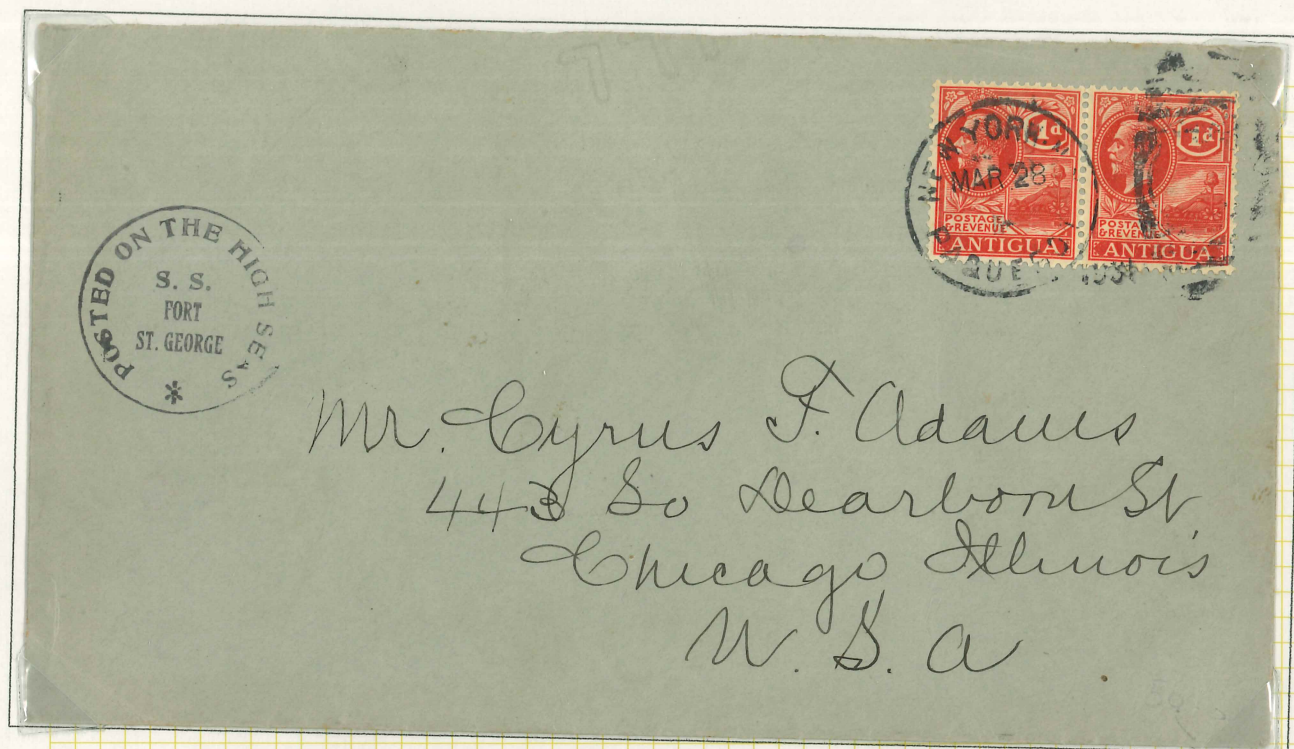 POSTED ON THE HIGH SEAS
S. S.
FORT
ST. GEORGE
*
NEW YORK
MAR 28
PAQUEBOT
1d
POSTAGE
& REVENUE
ANTIGUA
1d
POSTAGE
& REVENUE
ANTIGUA
Mr. Cyrus F. Adams
443 So Dearborn St.
Chicago Illinois
U. S. A